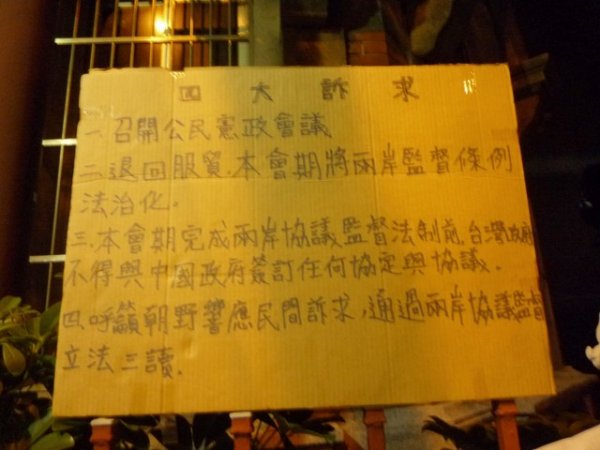 四大訴求
一.召開公民憲政會議
二.退回服貿.本會期將兩岸監督條例
法治化.
三.本會期完成兩岸協議監督法制前,台灣政府
不得與中國政府簽訂任何協定與協議.
四.呼籲朝野響應民間訴求,通過兩岸協議監督
立法三讀.